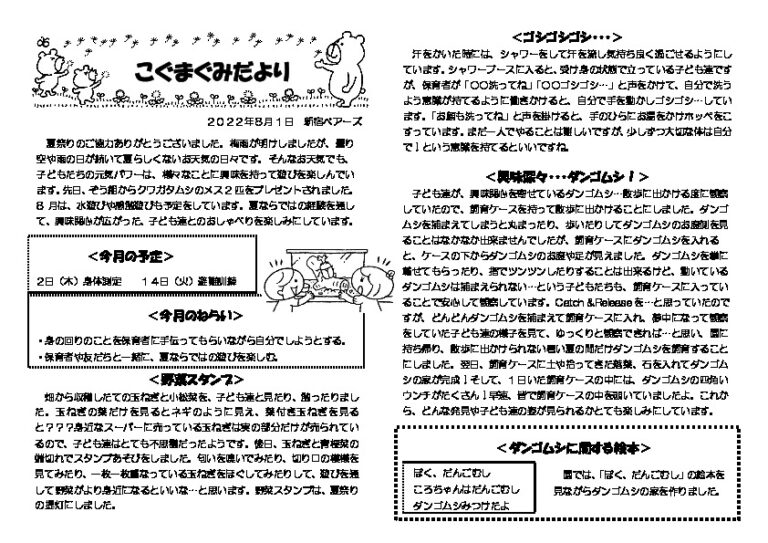 こぐまぐみだより
2022年8月1日 新宿ベアーズ
夏祭りのご協力ありがとうございました。梅雨が明けしましたが、曇り
空や雨の日が続いて夏らしくないお天気の日々です。そんなお天気でも、
子どもたちの元気パワーは、様々なことに興味を持って遊びを楽しんでい
ます。先日、ぞう組からクワガタムシのメス2匹をプレゼントされました。
8月は、水遊びや感触遊びも予定をしています。夏ならではの経験を通し
て、興味関心が広がった、子ども達とのおしゃべりを楽しみにしています。
<今月の予定>
2日(木)身体測定 14日(火)避難訓練
<今月のねらい>
・身の回りのことを保育者に手伝ってもらいながら自分でしようとする。
・保育者や友だちと一緒に、夏ならではの遊びを楽しむ。
<野菜スタンプ>
畑から収穫したての玉ねぎと小松菜を、子ども達と見たり、触ったりまし
た。玉ねぎの葉だけを見るとネギのように見え、葉付き玉ねぎを見る
と???身近なスーパーに売っている玉ねぎは実の部分だけが売られてい
るので、子ども達はとても不思議だったようです。後日、玉ねぎと青梗菜の
端切れでスタンプあそびをしました。匂いを嗅いでみたり、切り口の模様を
見てみたり、一枚一枚重なっている玉ねぎをほぐしてみたりして、遊びを通
して野菜がより身近になるといいな…と思います。野菜スタンプは、夏祭り
の提灯にしました。
<ゴシゴシゴシ・・・>
汗をかいた時には、シャワーをして汗を流し気持ち良く過ごせるようにし
ています。シャワーブースに入ると、受け身の状態で立っている子ども達です
が、保育者が「〇〇洗ってね」「〇〇ゴシゴシ…」と声をかけて、自分で洗う
よう意欲が持てるように働きかけると、自分で手を動かしゴシゴシ…してい
ます。「お顔も洗ってね」と声を掛けると、手のひらにお湯をかけホッペをこ
すっています。まだ一人でやることは難しいですが、少しずつ大切な体は自分
で!という意欲を持てるといいですね。
<興味深々・・・ダンゴムシ!>
子ども達が、興味関心を寄せているダンゴムシ…散歩に出かける度に観察
していたので、飼育ケースを持って散歩に出かけることにしました。ダンゴ
ムシを捕まえてしまうと丸まったり、歩いたりしてダンゴムシのお腹側を見
ることはなかなか出来ませんでしたが、飼育ケースにダンゴムシを入れる
と、ケースの下からダンゴムシのお腹や足が見えました。ダンゴムシを掌に
載せてもらったり、指でツンツンしたりすることは出来るけど、動いている
ダンゴムシは捕まえられない…という子どもたちも、飼育ケースに入ってい
ることで安心して観察しています。Catch &Releaseを…と思っていたのです
が、どんどんダンゴムシを捕まえて飼育ケースに入れ、夢中になって観察
をしていた子ども達の様子を見て、ゆっくりと観察できれば…と思い、園に
持ち帰り、散歩に出かけられない暑い夏の間だけダンゴムシを飼育すること
にしました。翌日、飼育ケースに土や拾ってきた落葉、石を入れてダンゴム
シの家が完成!そして、1日いた飼育ケースの中には、ダンゴムシの四角い
ウンチがたくさん!早速、皆で飼育ケースの中を覗いていましたよ。これか
ら、どんな発見や子ども達の姿が見られるかとても楽しみにしています。
<ダンゴムシに関する絵本>
ぼく、だんごむし
ころちゃんはだんごむし
ダンゴムシみつけたよ
園では、「ぼく、だんごむし」の絵本を
見ながらダンゴムシの家を作りました。